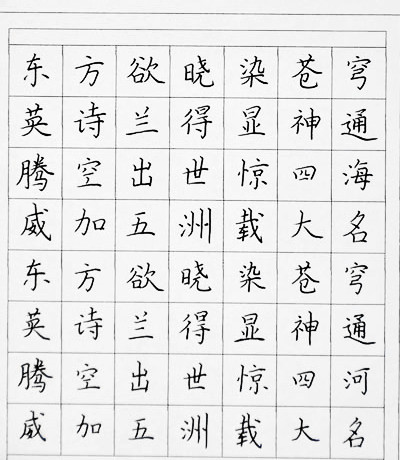 东方欲晓染苍穹
英诗兰得显神通
腾空出世惊四海
威加五洲载大名
东方欲晓染苍穹
英诗兰得显神通
腾空出世惊四河
威加五洲载大名